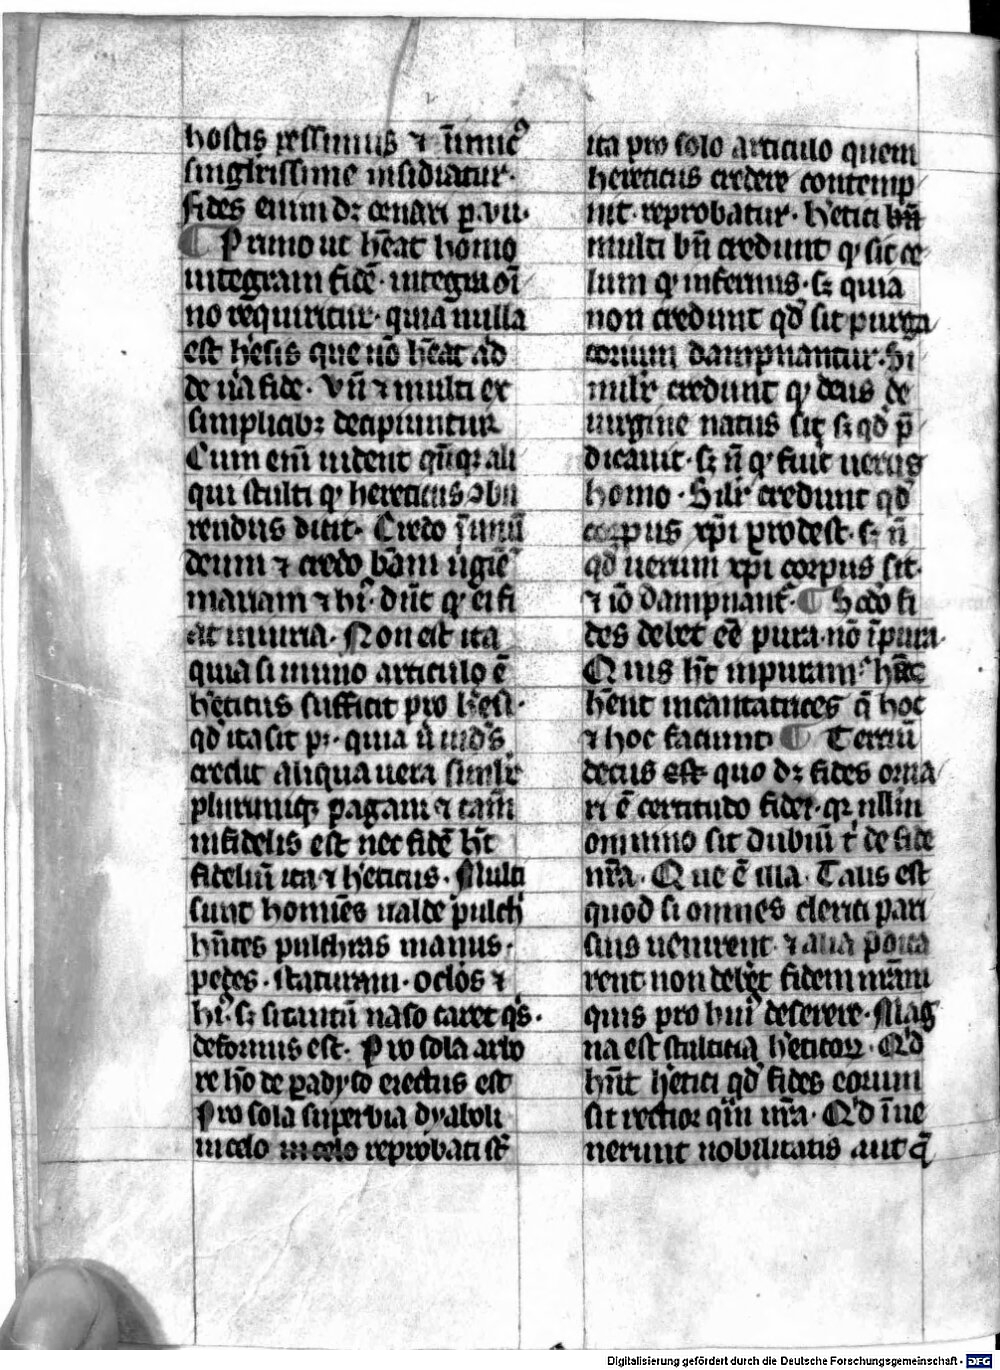 hostis pessimus ⁊ inimicꝰ
singlʼissime insidiatur·
fides enim dꝫ ornari ꝑ .vii.
¶ Primo ut hēat homo
integram fidē· integra oī
no requiritur· quia nulla
est hʼesis que nō hēat ad
de ūa fide· Vn̄ ⁊ multi ex
simplicibꝫ decipiuntur
Cum enī uident qn̄qꝫ ali
qui stulti qͥ hereticus ↄbu
rendus dicit· Credo ī unū
deum ⁊ credo bām ūgīē
mariam ⁊ hiͥ· dn̄t qͥ ei fi
at iniuria· Non est ita
quia si in uno articulo ē
hʼeticus sufficit pro hʼesi·
qd̄ ita sit pꝫ· quia
credit aliqua uera simlʼr
plurimiqꝫ pagani ⁊ tam̄
infidelis est nec fidē hʼt
fideliū ita ⁊ hʼeticus· Multi
sunt homīes ualde pulchʼ
hn̄tes pulchras manus·
pedes· staturam· oclōs ⁊
hiͥ· sꝫ si tantū naso caret qͥs·
deformis est· Pro sola arbo
re hō de ꝑadyso eiectus est
Pro sola superbia dyaboli
in celo in celo reprobati st̄
ita pro solo articulo quem
hereticus credere contemp
nit· reprobatur· hʼetici bn̄
multi bn̄ credunt qͥ sit ce
lum qͥ infernus· sꝫ quia
non credunt qd̄ sit purga
torium dampnantur· Si
milʼr credunt qͥ deus de
uirgine natus sit sꝫ qd̄ p̄
dicauit· sꝫ n̄ qͥ fuit uerus
homo· Silʼr credunt qd̄
corpus xp̄i prodest· sꝫ n̄
qd̄ uerum xp̄i corpus sit·
⁊ iō dampnant̄· ¶ Scdō fi
des debet eē pura· nō īpura·
Quis hʼt inpuram·
hʼent incantatrices q̄ hoc
⁊ hoc faciunt· ¶ Terciū
decus est quo dꝫ fides orna
ri ē certitudo fidei· qꝫ nllm̄
omnino sit dubiū tʼ de fide
nr̄a· Que ē illa· Talis est
quod si omnes clerici pari
sius uenirent· ⁊ alia p̄dica
rent non debet fidem nr̄am
quis pro huiͥ deserere· Mag
na est stulticia hʼeticoꝝ· Qd̄
hn̄t hʼetici qd̄ fides eorum
sit rectior qͣm nr̄a· Qd̄ īue
nerunt nobilitatis aut q̄
Digitalisierung gefördert durch die Deutsche Forschungsgemeinschaft - DFG